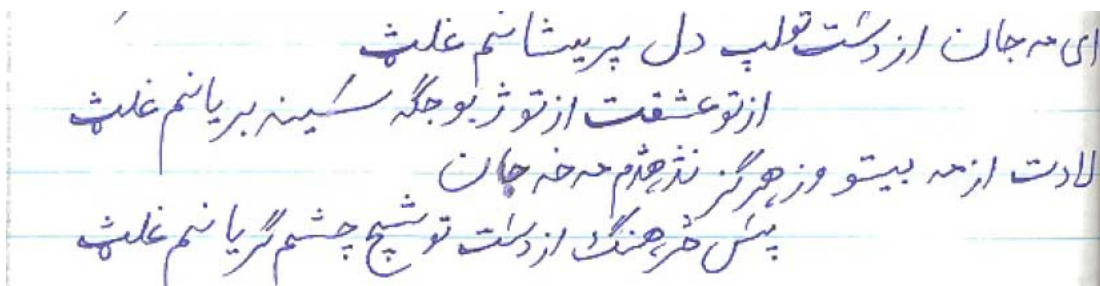 ای مه جان از دست تولپ دل پریشانم غلث
از تو عشقت از تو ژیو جگه سینه بریانم غلث
لادت از مه بیتو وز هرگز نذهذم مه خه جان
پس خرهنگ از دست تو شیچ چشم گریانم غلث